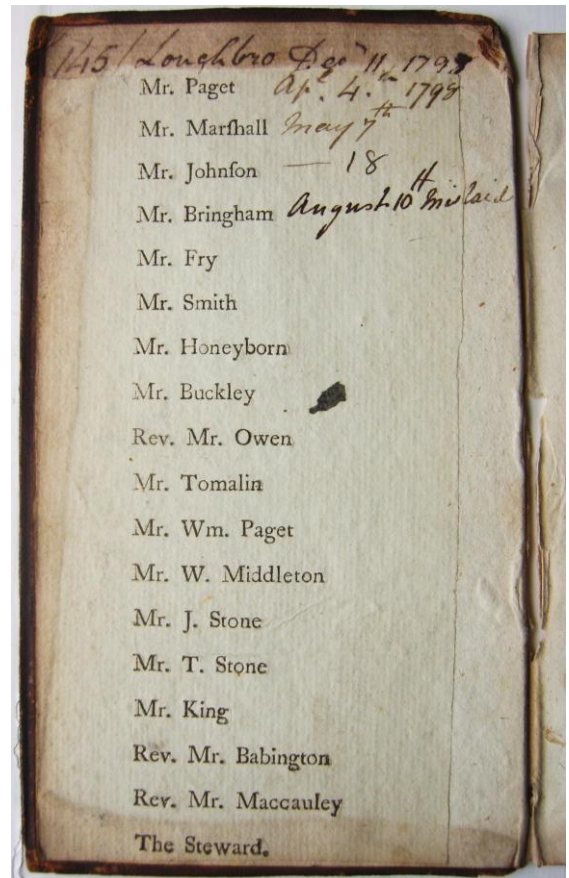 145 Loughbro Decr 11. 1798
Mr. Paget Apl. 4.th 1798
Mr. Marſhall May 7th
Mr. Johnſon — 18
Mr. Bringham August 10th Mislaid
Mr. Fry
Mr. Smith
Mr. Honeyborn
Mr. Buckley
Rev. Mr. Owen
Mr. Tomalin
Mr. Wm. Paget
Mr. W. Middleton
Mr. J. Stone
Mr. T. Stone
Mr. King
Rev. Mr. Babington
Rev. Mr. Maccauley
The Steward.